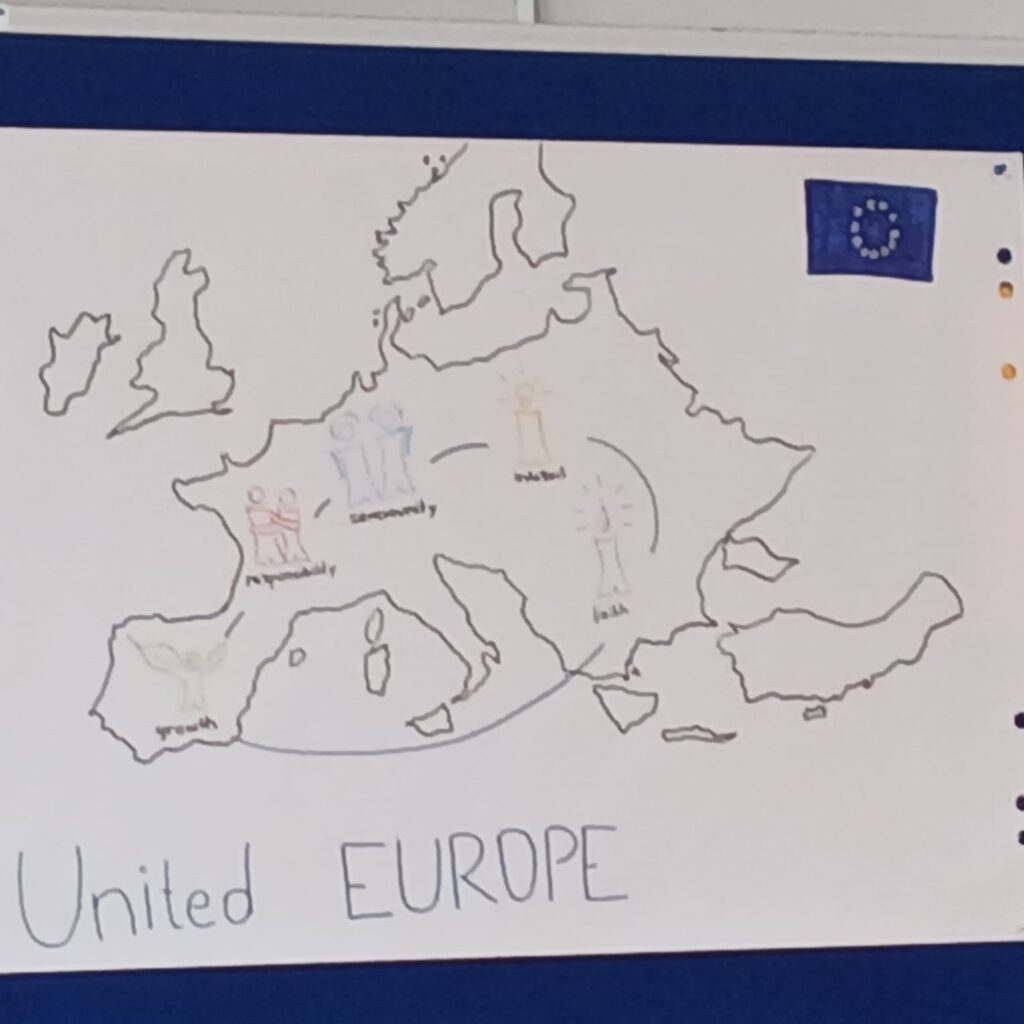 community
responsibility
faith
growth
United EUROPE